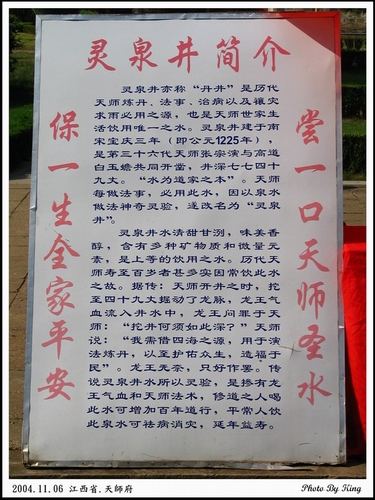 灵泉井简介
尝一口天师圣水
保一生全家平安
灵泉井亦称“丹井”是历代
天师炼丹、法事、治病以及禳灾
求雨必用之源，也是天师世家生
活饮用唯一之水。灵泉井建于南
宋宝庆三年（即公元1225年），
是第三十六代天师张宗演与高道
白玉蟾共同开凿，井深七七四十
九丈。“水为道家之本”。天师
每做法事，必用此水，因以泉水
做法神奇灵验，遂改名为“灵泉
井”。
灵泉井水清甜甘洌，味美香
醇，含有多种矿物质和微量元
素，是上等的饮用之水。历代天
师寿至百岁者甚多实因常饮此水
之故。据传：天师开井之时，挖
至四十九丈掘动了龙脉，龙王气
血流入井水中，龙王问罪于天
师：“挖井何须如此深？”天师
说：“我需借四海之源，用于演
法炼丹，以至护佑众生，造福于
民”。龙王无奈，只好作罢。传
说灵泉井水所以灵验，是掺有龙
王气血和天师法术，修道之人喝
此水可增加百年道行，平常人饮
此泉水可祛病消灾，延年益寿。
2004.11.06 江西省.天師府
Photo By King